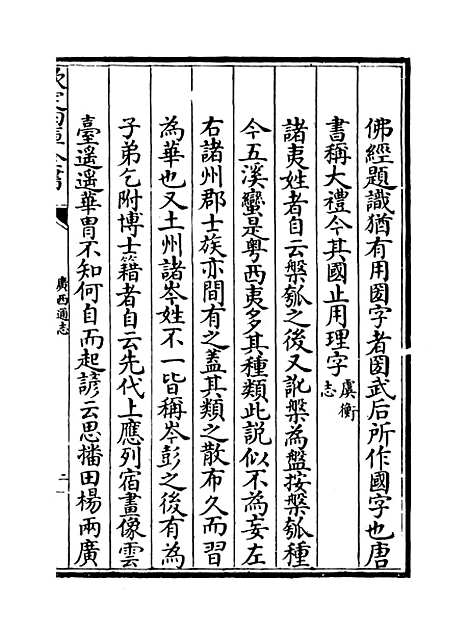 佛經題識猶有用圀字者圀武后所作國字也唐
書稱大禮今其國止用理字虞衡志
諸夷姓者自云槃瓠之後又訛槃為盤按槃瓠種
今五溪蠻是粵西夷多其種類此説似不為妄左
右諸州郡士族亦間有之蓋其類之散布久而習
為華也又土州諸岑姓不一皆稱岑彭之後有為
子弟乞附博士籍者自云先代上應列宿畫像雲
臺遥遥華胄不知何自而起諺云思播田楊兩廣
欽定四庫全書
廣西通志
二